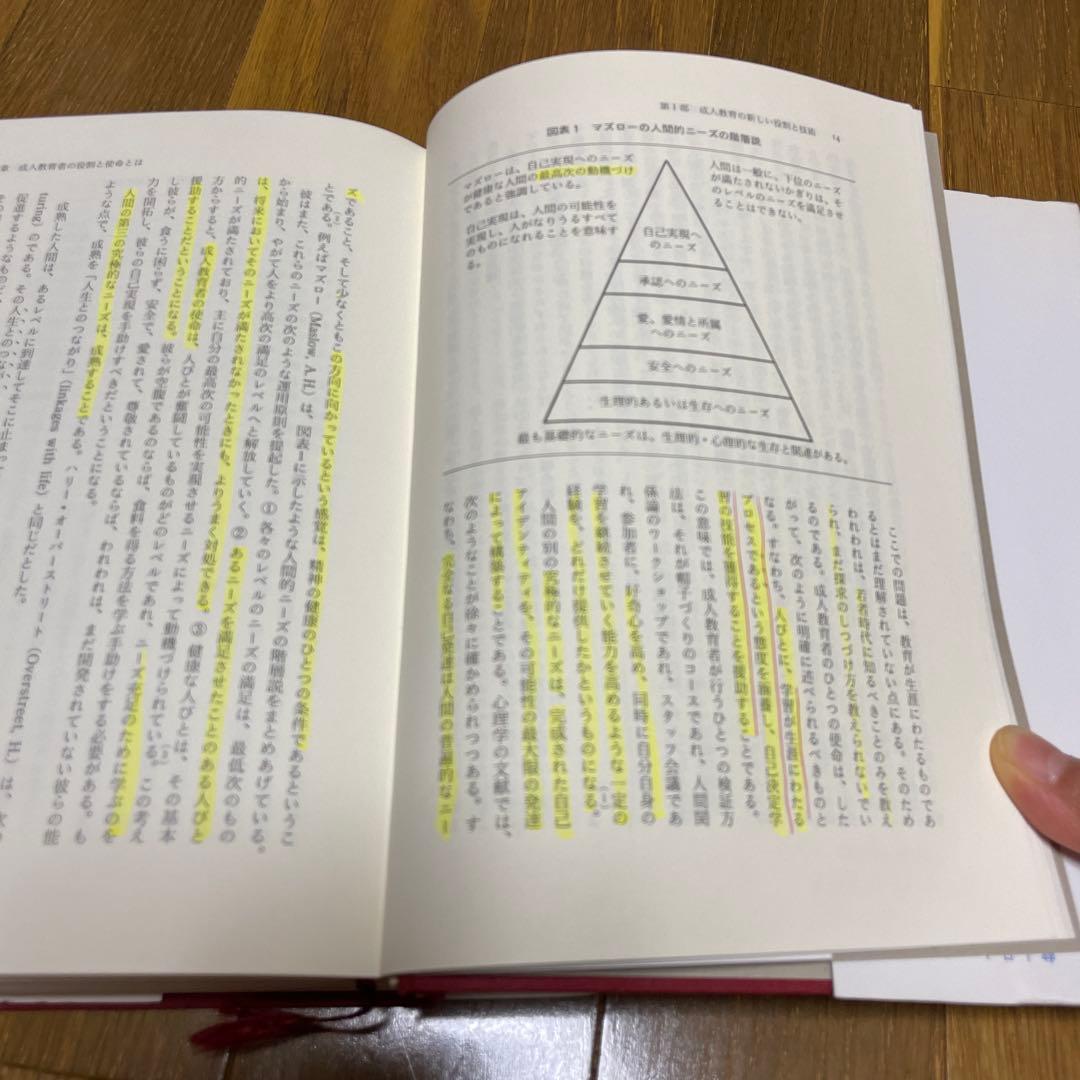 第Ⅰ部 成人教育の新しい役割と技術 14
図表1 マズローの人間的ニーズの階層説
マズローは、自己実現へのニーズ
が健康な人間の最高次の動機づけ
であると強調している。
自己実現は、人間の可能性を
実現し、人がなりうるすべて
のものになれることを意味す
る。
人間は一般に、下位のニーズ
が満たされないかぎりは、そ
のレベルのニーズを満足させ
ることはできない。
自己実現へ
のニーズ
承認へのニーズ
愛、愛情と所属
へのニーズ
安全へのニーズ
生理的あるいは生存へのニーズ
最も基礎的なニーズは、生理的・心理的な生存と関連がある。
ここでの問題は、教育が生涯にわたるものであ
るとはまだ理解されていない点にある。そのため
われわれは、若者時代に知るべきことのみを教え
られ、まだ探求のしつづけ方を教えられないでい
るのである。成人教育者のひとつの使命は、した
がって、次のように明確に述べられるべきものと
なる。すなわち、人びとに、学習が生涯にわたる
プロセスであるという態度を涵養し、自己決定学
習の技能を獲得することを援助することである。
この意味では、成人教育者が行うひとつの検証方
法は、それが帽子づくりのコースであれ、人間関
係論のワークショップであれ、スタッフ会議であ
れ、参加者に、好奇心を高め、同時に自分自身の
学習を継続させていく能力を高めるような一定の
経験を、どれだけ提供したかというものになる。
人間の別の究極的なニーズは、完成された自己
アイデンティティを、その可能性の最大限の発達
によって構築することである。心理学の文献では、
次のようなことが徐々に確かめられつつある。す
なわち、完全なる自己発達は人間の普遍的なニー
章 成人教育者の役割と使命とは
ズであること、そして少なくともこの方向に向かっているという感覚は、精神の健康のひとつの条件であるというこ
とである。例えばマズロー(Maslow, A.H.)は、図表1に示したような人間的ニーズの階層説をまとめあげている。
彼はまた、これらのニーズの次のような運用原則を提起した。①各々のレベルのニーズの満足は、最低次のもの
から始まり、やがて人をより高次の満足のレベルへと解放していく。②あるニーズを満足させたことのある人びと
は、将来においてそのニーズが満たされなかったときにも、よりうまく対処できる。③健康な人びとは、その基本
的ニーズが満たされており、主に自分の最高次の可能性を実現させるニーズによって動機づけられている。この考え
方からすると、成人教育者の使命は、人びとが奮闘しているものがどのレベルであれ、ニーズ充足のために学ぶのを
援助することだということになる。彼らが空腹であるのならば、食料を得る方法を学ぶ手助けをする必要がある。も
し彼らが、食うに困らず、安全で、愛されて、尊敬されているならば、われわれは、まだ開発されていない彼らの能
力を開拓し、彼らの自己実現を手助けすべきだということになる。
人間の第三の究極的なニーズは、成熟することである。ハリー・オーバーストリート(Overstreet, H.)は、
ような点で、成熟を「人生とのつながり」(linkages with life)と同じだとした。
成熟した人間は、あるレベルに到達してそこに止まって